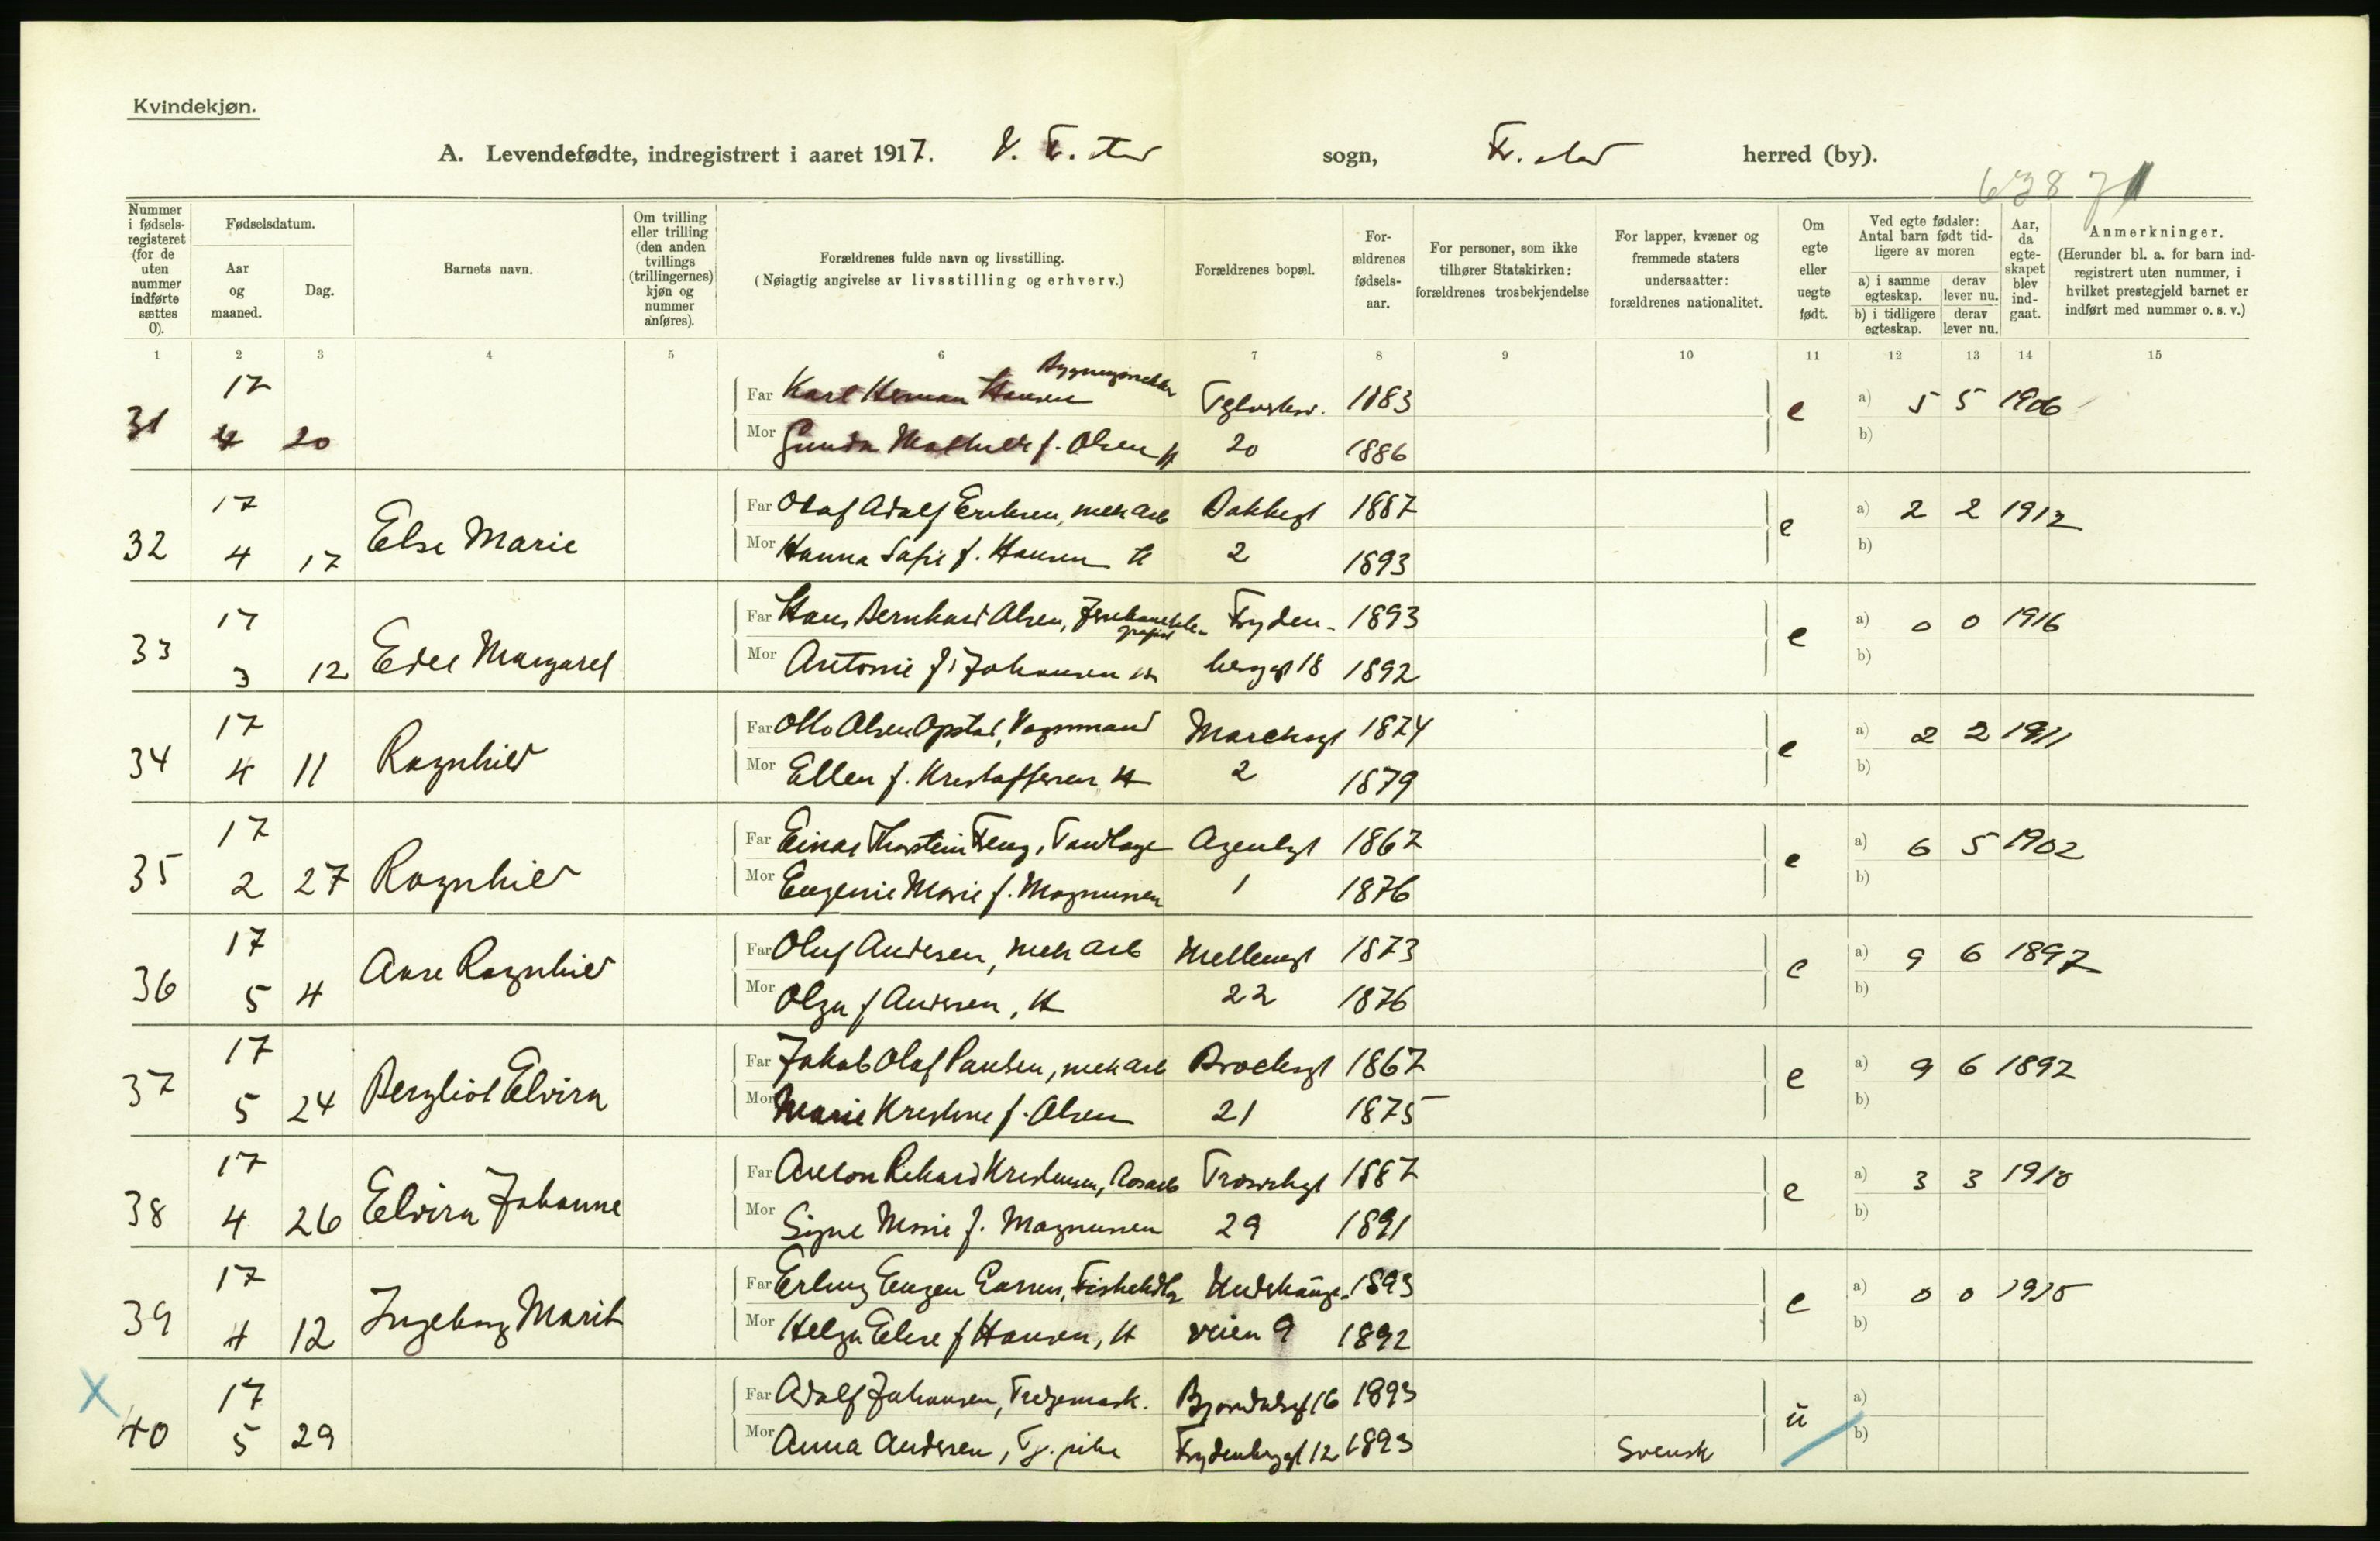 Kvindekjøn.
A. Levendefødte, indregistrert i aaret 1917. V. Fr. stad sogn, Fr. stad herred (by).
6387
Nummer i fødselsregisteret (for de uten nummer indførte sættes 0).
Fødselsdatum.
Aar og maaned.
Dag.
Barnets navn.
Om tvilling eller trilling (den anden tvillings (trillingernes) kjøn og nummer anføres).
Forældrenes fulde navn og livsstilling.
(Nøiagtig angivelse av livsstilling og erhverv.)
Forældrenes bopæl.
Forældrenes fødselsaar.
For personer, som ikke tilhører Statskirken: forældrenes trosbekjendelse
For lapper, kvæner og fremmede staters undersaatter: forældrenes nationalitet.
Om egte eller uegte født.
Ved egte fødsler: Antal barn født tidligere av moren
a) i samme egteskap.
derav lever nu.
b) i tidligere egteskap.
derav lever nu.
Aar, da egteskapet blev indgaat.
Anmerkninger.
(Herunder bl. a. for barn indregistrert uten nummer, i hvilket prestegjeld barnet er indført med nummer o. s. v.)
1 2 3 4 5 6 7 8 9 10 11 12 13 14 15
17 Far Karl Herman Hansen 1883 a) 5 5 1906
31 4 20 Mor Gunda Mathilde f. Olsen H 20 1886 e b)
17 Far Olaf Adolf Eriksen, mek arb Bakkegt 1887 a) 2 2 1912
32 4 17 Else Marie Mor Hanna Sofie f. Hansen H 2 1893 e b)
17 Far Hans Bernhard Olsen, Jernbanetelegrafist Fryden- 1893 a) 0 0 1916
33 3 12 Edel Margaret Mor Antonie f. Johansen berggt 18 1892 e b)
17 Far Otto Olsen Opstad, Vognmand 1874 a) 2 2 1911
34 4 11 Ragnhild Mor Ellen f. Kristoffersen H 2 1879 e b)
17 Far Einar Thorstein Feng, Tandlæge Agentgt 1867 a) 6 5 1902
35 2 27 Ragnhild Mor Eugenie Marie f. Magnussen 1 1876 e b)
17 Far Oluf Andersen, mek arb Mellemgt 1873 a) 9 6 1897
36 5 4 Aase Ragnhild Mor Olga f Andersen, H 22 1876 e b)
17 Far Jakob Olaf Paulsen, mek arb Brochsgt 1867 a) 9 6 1892
37 5 24 Bergliot Elvira Mor Marie Kristine f. Olsen 21 1875 e b)
17 Far Anton Rikard Kristensen, Trosvikgt 1887 a) 3 3 1910
38 4 26 Elvira Johanne Mor Signe Marie f. Magnussen 29 1891 e b)
17 Far Erling Eugen Larsen, Fiskehdlr 1893 a) 0 0 1915
39 4 12 Ingeborg Marit Mor Helga Elise f Hansen, H veien 9 1892 e b)
X 17 Far Adolf Johansen, 16 1893 a)
40 5 29 Mor Anna Andersen, Tj. pike Frydenberggt 12 1893 Svensk u b)